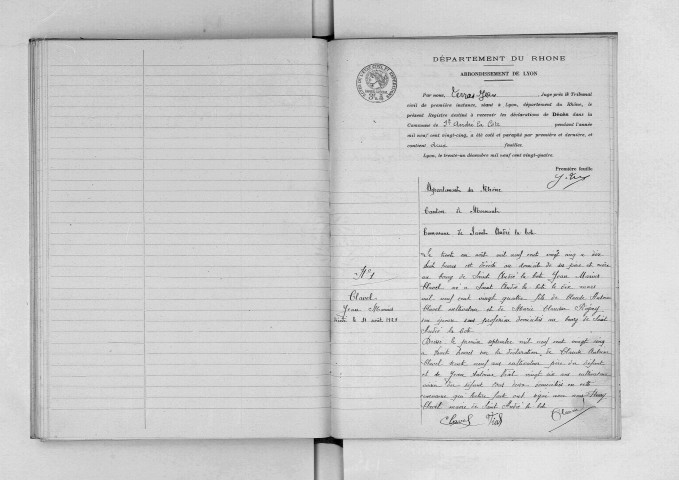 DÉPARTEMENT DU RHONE
ARRONDISSEMENT DE LYON
Par nous, Juge près le Tribunal
civil de première instance, séant à Lyon, département du Rhône, le
présent Registre destiné à recevoir les déclarations de Décès dans la
Commune de St André la Côte pendant l'année
mil neuf cent vingt-cinq, a été coté et paraphé par première et dernière, et
contient deux feuilles.
Lyon, le trente-un décembre mil neuf cent vingt-quatre.
Première feuille
Département du Rhône
Canton de Mornant
Commune de Saint André la Côte
N° 1
Clavel
Jean Marius
décédé le 31 août 1925
Le trente un août mil neuf cent vingt cinq à dix
huit heures est décédé au domicile de ses père et mère
au bourg de Saint André la Côte Jean Marius
Clavel né à Saint André la Côte le dix mars
mil neuf cent vingt quatre fils de Claude Antoine
Clavel cultivateur et de Marie Claudine
son épouse sans profession domiciliés au bourg de Saint
André la Côte
Dressé le premier septembre mil neuf cent vingt cinq
à heures sur la déclaration de Claude Antoine
Clavel trente neuf ans cultivateur père du défunt
et de Antoine Vial vingt six ans cultivateur
voisin du défunt tous deux domiciliés en cette
commune qui lecture faite ont signé avec nous
Clavel maire de Saint André la Côte
Clavel Vial Clavel